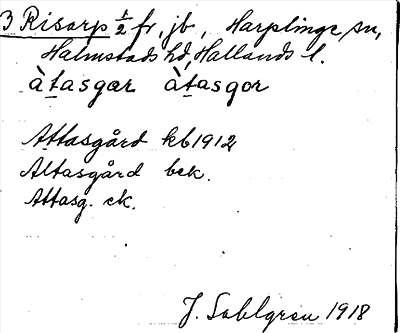 3 Risarp 1/2 fr, jb, Harplinge sn,
Halmstads hd, Hallands l.
àtasgær àtasgor
Attasgård kb 1912
Altasgård bek.
Attasg. ek.
J. Sahlgren 1918